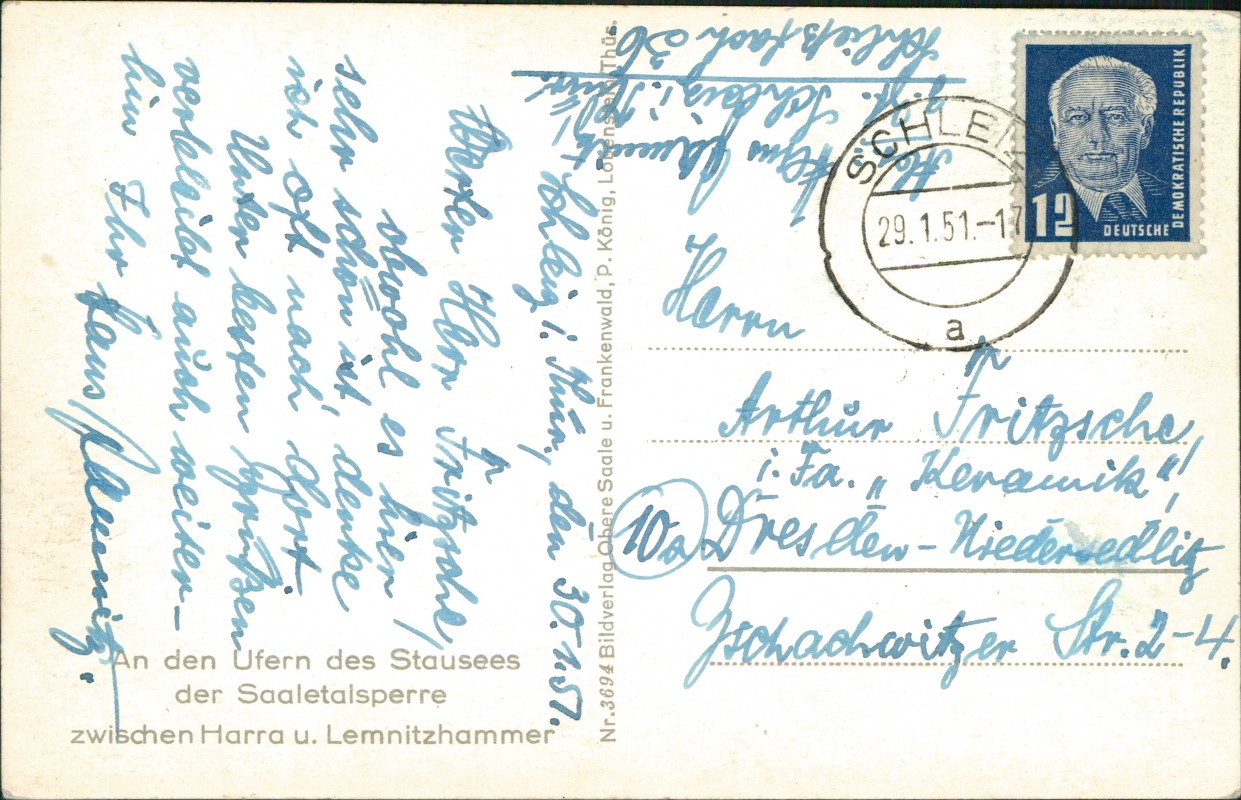 Schleiz i. Thür., den 30.1.51.
Werter Herr Fritzsche,
obwohl es hier
sehr schön ist, denke
ich oft nach dort.
Unter besten Grüßen
verbleibt auch weiter-
hin Ihr Hans
Hans
z. Zt. Schleiz i. Thür.
Schließfach 36
DEUTSCHE DEMOKRATISCHE REPUBLIK
12
SCHLEIZ
29.1.51.-17
a
Herrn
Arthur Fritzsche,
i. Fa. „Keramik“,
10a Dresden-Niedersedlitz
Zschachwitzer Str. 2-4.
An den Ufern des Stausees
der Saaletalsperre
zwischen Harra u. Lemnitzhammer
Nr. 3694 Bildverlag Obere Saale u. Frankenwald, P. König, Lobenstein/Thür.